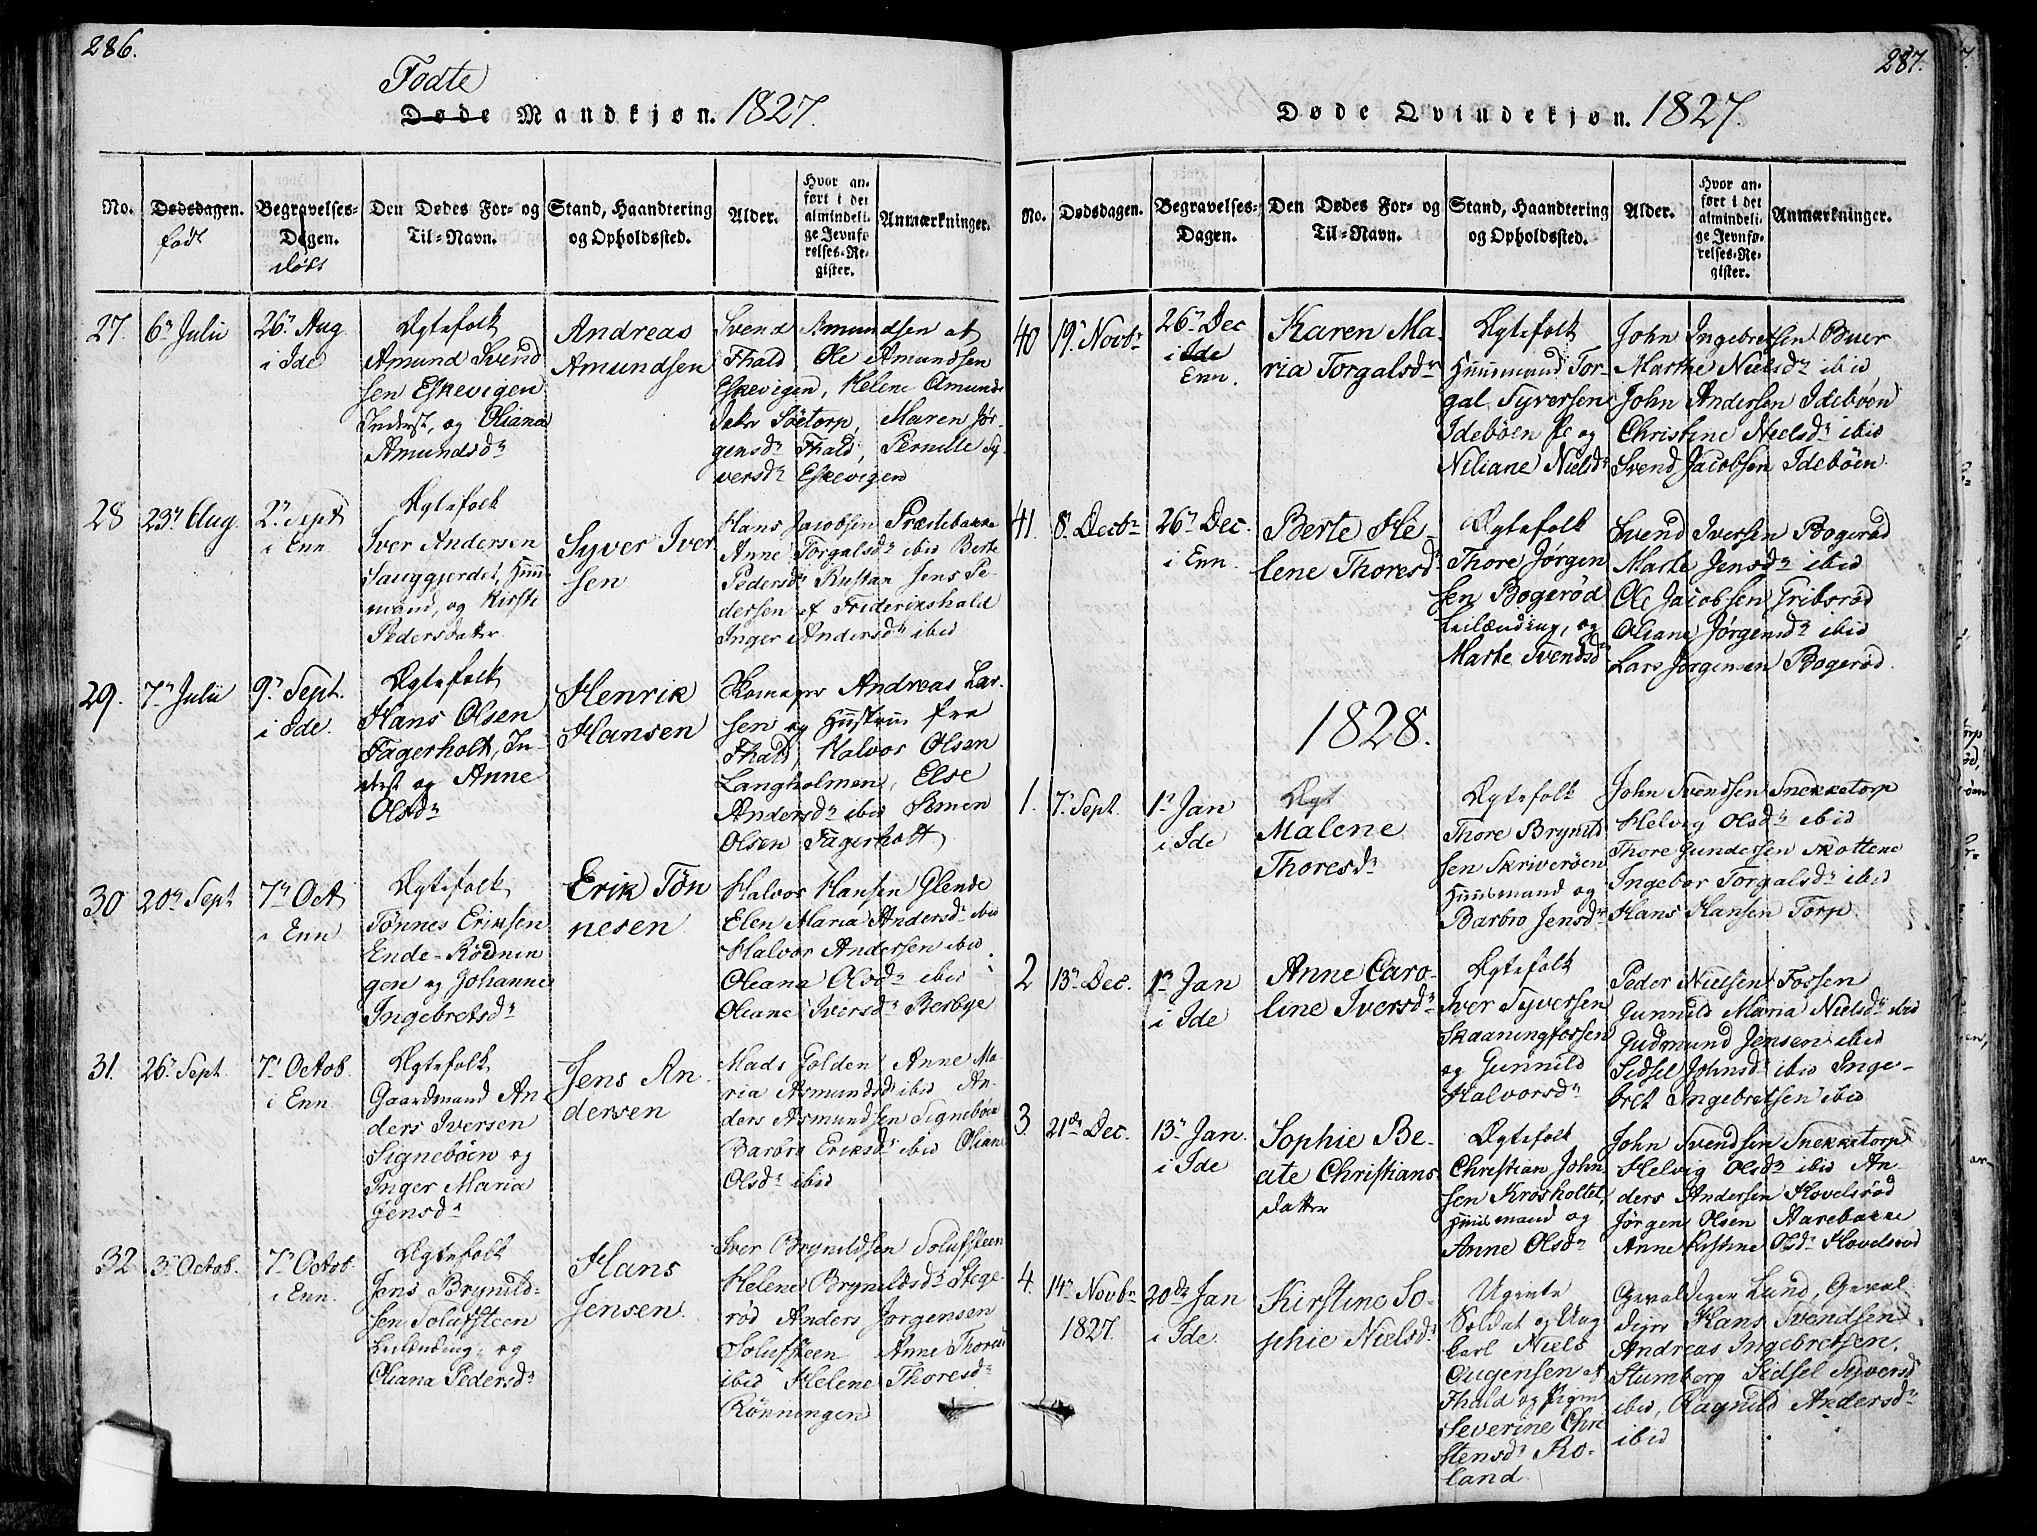 286.
Fødte
Døde Mandkjøn. 1827.
No.
Dødsdagen.
født
Begravelses-
Dagen.
døbt
Den Dødes For- og
Til-Navn.
Stand, Haandtering
og Opholdssted.
Alder.
Hvor an-
ført i det
almindeli-
ge Jevnfø-
relses-Re-
gister.
Anmærkninger.
27.
6r Julii
26r Aug
i Ide
Ægtefolk
Amund Svend
sen Eskevigen
Inderst, og Oliana
Amundsdr
Andreas
Amundsen
Svend Amundsen af
Fhald, Ole Amundsen
Eskevigen, Helene Amunds
datter Söetorp, Maren Jör-
gensdr Fhald, Pernille Sy-
versdr Eskevigen
28
23r Aug.
2r Sept
i Enn
Ægtefolk
Iver Andersen
Sauggjerdet, Huus
mand, og Kirsti
Pedersdatter
Syver Iver
sen
Hans Jacobsen Præstebakke
Anne Torgalsdr ibid Berte
Pedersdr Rustan Jens Pe-
dersen af Frideriкshald
Inger Andersdr ibid
29.
7r Julii
9r Sept.
i Ide.
Ægtefolk
Hans Olsen
Fagerholt, In-
derst og Anne
Olsdr
Henrik
Hansen
Skomager Andreas Lar-
sen og Hustrue fra
Fhald, Halvor Olsen
Langholmen, Else
Andersdr ibid Simen
Olsen Fagerholt
30
20r Sept
7r Oct
i Enn
Ægtefolk
Tønnes Eriksen
Ende-Rødnin
gen og Johanne
Ingebretsdr
Erik Tøn
nesen
Halvor Hansen Glende
Elen Maria Andersdr ibid
Halvor Andersen ibid
Oliana Olsdr ibid
Oliane Iversdr Berbye
31.
26r Sept.
7r Octob.
i Enn.
Ægtefolk
Gaardmand An
ders Iversen
Signebøen og
Inger Maria
Jensdr
Jens An-
dersen
Mads Golden Anne Ma-
ria Asmundsd ibid An-
ders Asmundsen Signebøen
Barbro Eriksdr ibid Oliane
Olsdr ibid
32
3r Octob.
7r Octob.
i Enn.
Ægtefolk
Jens Brynild-
sen Solufsteen
Leilænding, og
Oliana Pedersdr
Hans
Jensen.
Iver Brynildsen Solufsteen
Helene Brynildsdr Stege-
rød Anders Jorgensen
Solufsteen Anne Thoresd
ibid Helene Thoresdr
Rönningen
287.
Døde Qvindekjøn. 1827.
No.
Dødsdagen.
Begravelses-
Dagen.
Den Dødes For- og
Til-Navn.
Stand, Haandtering
og Opholdssted.
Alder.
Hvor an-
ført i det
almindeli-
ge Jevnfø-
relses-Re-
gister.
Anmærkninger.
40
19r Novbr
26r Dec
i Ide
Enn.
Karen Ma-
ria Torgalsdr
Ægtefolk
Huusmand Tor-
gal Syversen
Idebøen og
Niliane Nielsdr
John Ingebretsen Buer
Marthe Nielsdr ibid
John Andersen Idebøen
Christine Nielsdr ibid
Svend Jacobsen Idebøen.
41.
8r Decbr
26r Dec.
i Enn.
Berte He-
lene Thoresdr
Ægtefolk
Thore Jørgen
sen Bogerød
Leilænding, og
Marte Svendsdr
Svend Iversen Bogerød
Marte Jensdr ibid
Ole Jacobsen Gribsrød
Oliane Jørgensdr ibid
Lars Jørgensen Bogerød.
1828.
1.
7r Sept.
1r Jan
i Ide
Ægt
Malene
Thoresdr
Ægtefolk
Thore Brynild
sen Skriverøen
Huusmand og
Barbro Jensdr
John Svendsen Snekketorp
Helvig Olsdr ibid
Thore Gundersen Skottene
Ingebor Torgalsdr ibid
Hans Hansen Torp.
2
13r Dec.
1r Jan
i Ide
Anne Caro-
line Iversdr
Ægtefolk
Iver Syversen
Skaaningfossen
og Gunnild
Halvorsdr
Peder Nielsen Fossen
Gunnild Maria Nielsdr ibid
Gudmund Jensen ibid
Sidsel Johnsdr ibid Inge-
bret Ingebretsen ibid
3.
21de Dec.
13r Jan.
i Ide
Sophie Be-
ate Christians
datter
Ægtefolk
Christian John
sen Krosholtet,
Huusmand og
Anne Olsdr
John Svendsen Snekketorp
Helvig Olsdr ibid An-
ders Andersen Hovelsrød
Jørgen Olsen Aarebakke
Anne Kistine Olsdr Hovelsrød
4.
14r Novbr
1827.
20de Jan
i Ide
Kirstine So-
phie Nielsdr
Ugivte
Soldat og Ung
karl Niels
Augensen af
Fhald og Pigen
Severine Chri
stensdr Ro-
land.
Gevaldiger Lund, Geval-
digrs Hans Svendsen
Andreas Ingebretsen.
Stumberg Sidsel Syversd
ibid, Ragnild Andersdr
ibid